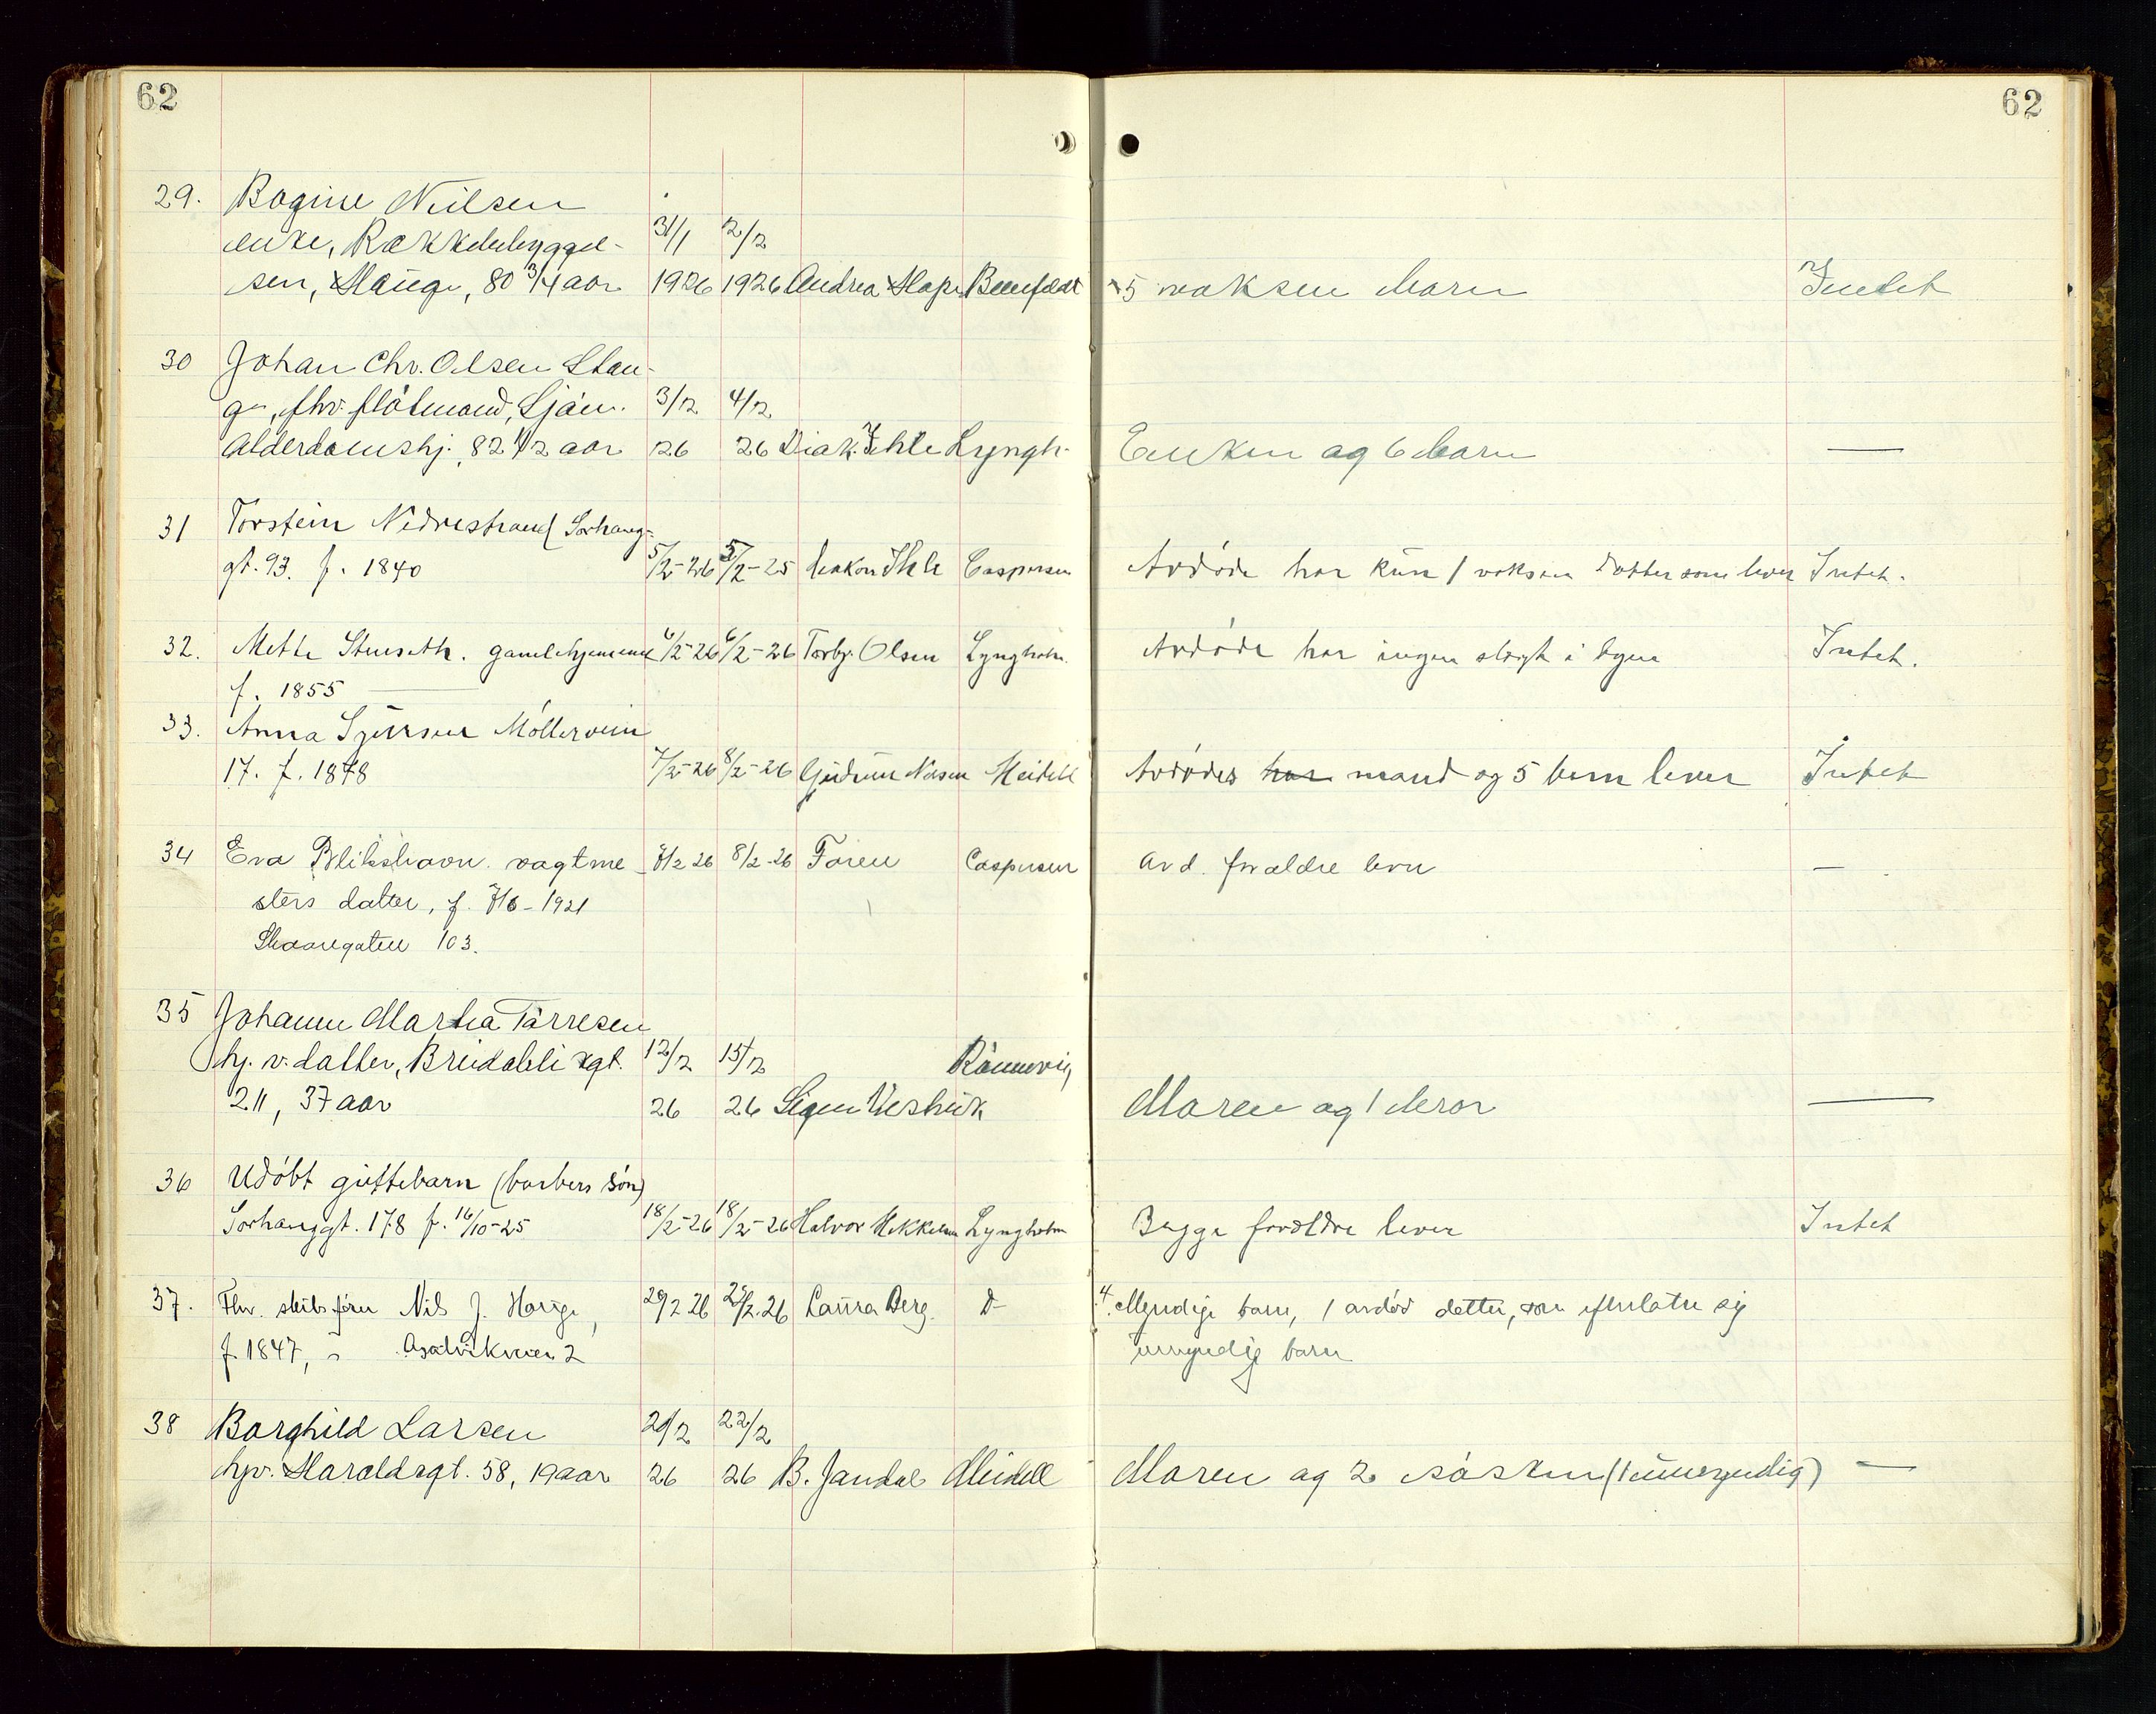 62
62
29. Bogine Nielsen
enke, Rækkebebyggel-
sen, Hauge, 80 3/4 aar 31/1 1926 2/2 1926 Andrea Hope 5 voksen barn Intet
30 Johan Chr. Olsen Stan-
ge, fhv. flötmand, Sjöm.
Alderdomshj. 82 1/2 aar 3/2 26 4/2 26 Diak. Ihle Lyngh. Enken og 6 barn —
31 Torstein Nedrestrand Sørhaug-
gt. 93. f. 1840 5/2-26 5/2-25 diakon Ihle Caspersen Avdöde har kun 1 voksen datter som lever Intet.
32. Mette Stenseth. gamlehjemmet 6/2-26 6/2-26 Torbj. Olsen Lyngholm Avdöde har ingen slegt i byen Intet.
f. 1855
33. Anna Syversen Möllerveien
17. f. 1878 7/2-26 8/2-26 Gudrun Meidell Avdödes har mand og 5 barn lever Intet
34 Eva Blikshavn. vagtme- 7/2 26 8/2-26 Foren Caspersen avd. forældre lever —
sters datter, f. 7/6-1921
Skaaregaten 103.
35 Johanne Martha Törresen
hj. v. datter, Breidablikgt. 12/2 15/2 Rönnevig
211, 37 aar 26 26 Signe Vestvik Moren og 1 bror —
36 Udöbt guttebarn (barbers sön)
Sörhauggt. 178 f. 16/10-25 18/2-26 18/2-26 Halvor Mikkelsen Lyngholm Begge foreldre lever Intet
37. Fhv. skibsförer Nils J. Hauge, 20/2 26 22/2.26 Laura Berg. D- 4 Myndige barn, 1 avdöd datter, som efterlater sig
f. 1847, Asalvikveien 2 umyndig barn
38 Borghild Larsen 21/2 22/2
hjv. Haraldsgt. 58, 19 aar 26 26 B. Jandal Meidell Moren og 2 sösken (1 umyndig) —